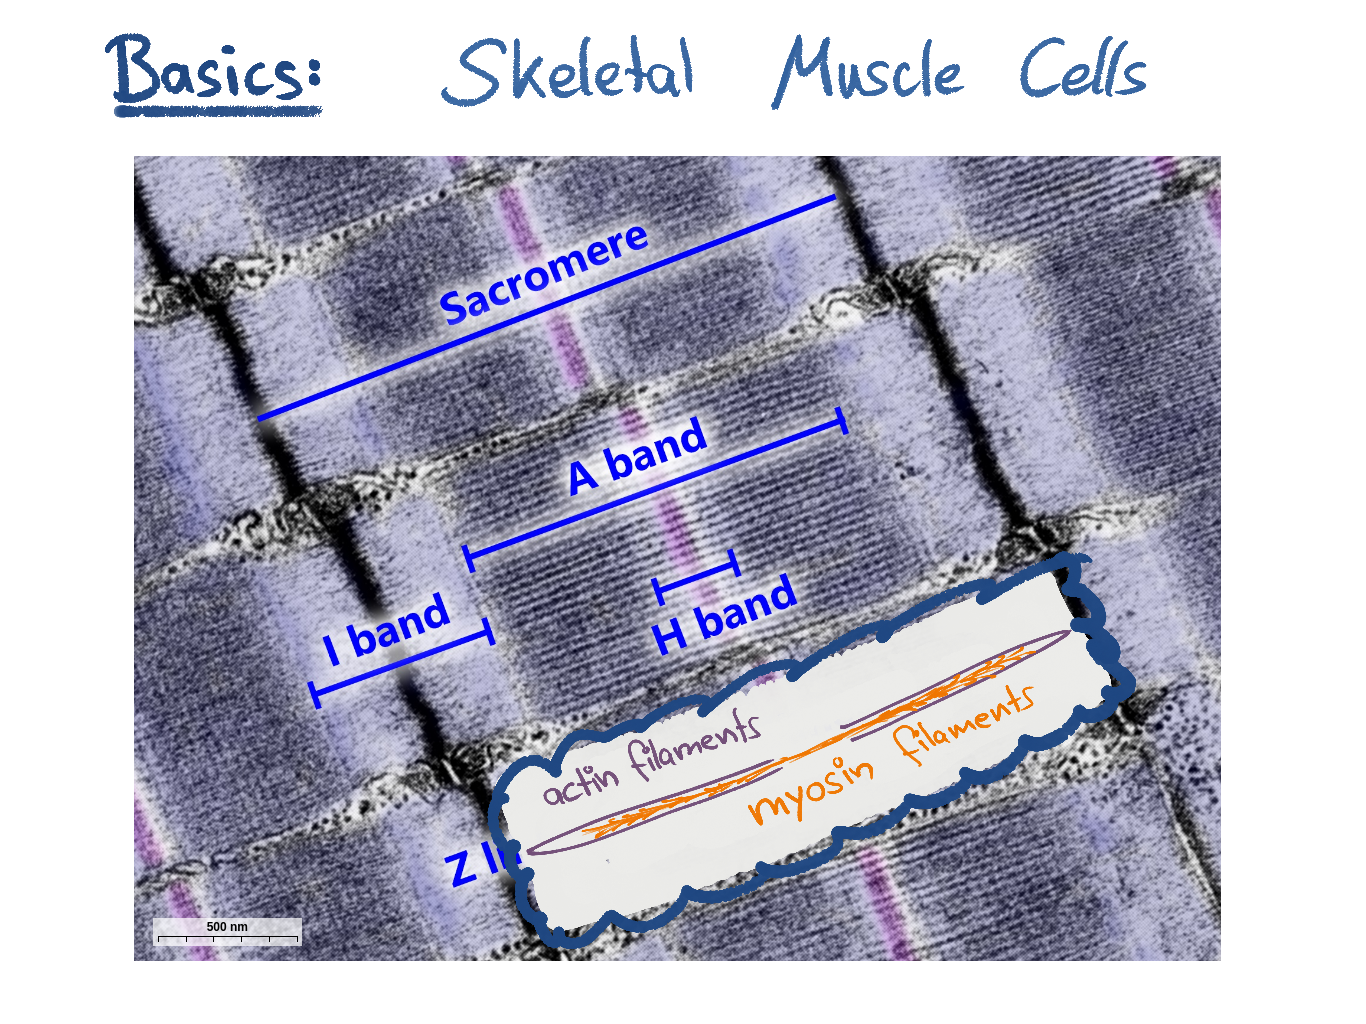 Basics: Skeletal Muscle Cells
Sacromere
A band
I band
H band
actin filaments
myosin filaments
Z
500 nm